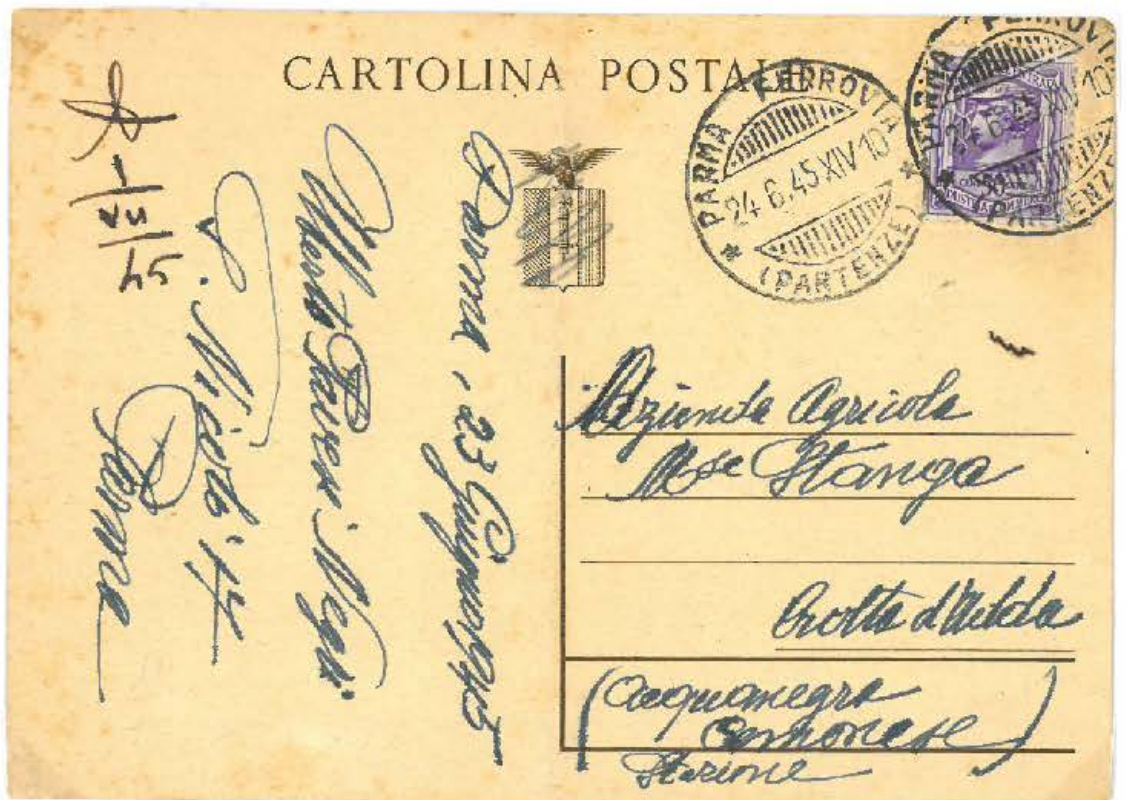 CARTOLINA POSTALE
PARMA FERROVIA
24.6.45 XIV 10
(PARTENZE)
PARMA FERROVIA
24.6.45 XIV 10
PARTENZE
Parma, 23 Giugno 1945
Negri
Parma
1
VII
45
Azienda Agricola
Mse Stanga
Crotta d'Adda
(Acquanegra
Cremonese)
Stazione